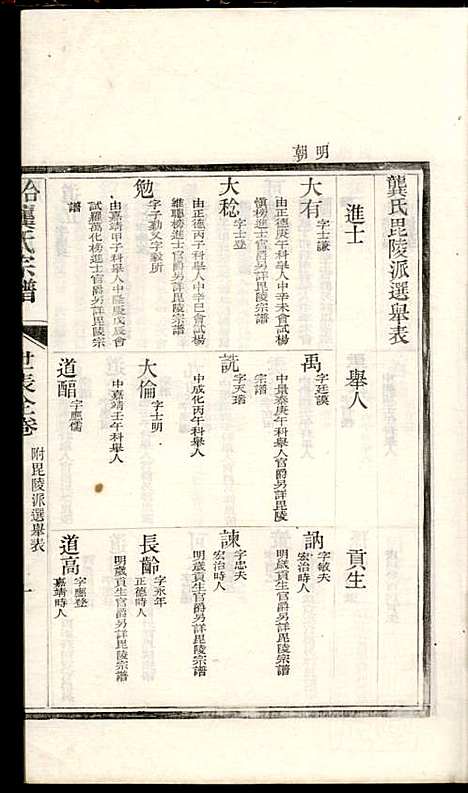 明朝
龔氏毘陵派選舉表
進士
舉人
貢生
大有
字士謙
由正德庚午科舉人中辛未會試楊
慎榜進士官爵另詳毘陵宗譜
禹
字廷謨
中景泰庚午科舉人官爵另詳毘陵
宗譜
訥
字敏夫
宏治時人
明歲貢生官爵另詳毘陵宗譜
大稔
字士登
由正德丙子科舉人中辛巳會試楊
維聰榜進士官爵另詳毘陵宗譜
詵
字天瑞
中成化丙午科舉人
諫
字忠夫
宏治時人
明歲貢生官爵另詳毘陵宗譜
勉
字子勤又字毅所
由嘉靖甲子科舉人中隆慶戊辰會
試羅萬化榜進士官爵另詳毘陵宗
譜
大倫
字士明
中嘉靖壬午科舉人
長齡
字永年
正德時人
明歲貢生官爵另詳毘陵宗譜
道醕
字應儒
道高
字應登
嘉靖時人
龔氏宗譜
世表全卷
附毘陵派選舉表
一